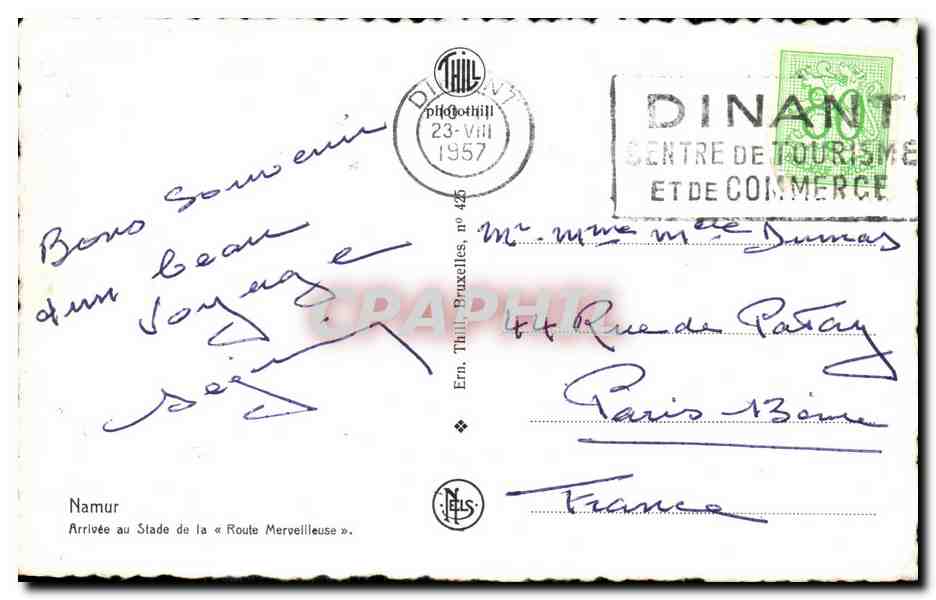 THILL
photothill
DINANT
23-VIII
1957
DINANT
CENTRE DE TOURISME
ET DE COMMERCE
80
Bons Souvenir
d'un beau
voyage
Mr. Mme Melle Dumas
44 Rue de Patay
Paris 13ème
France
Ern. Thill, Bruxelles, n° 425
CPAPHIL
NELS
Namur
Arrivée au Stade de la « Route Merveilleuse ».